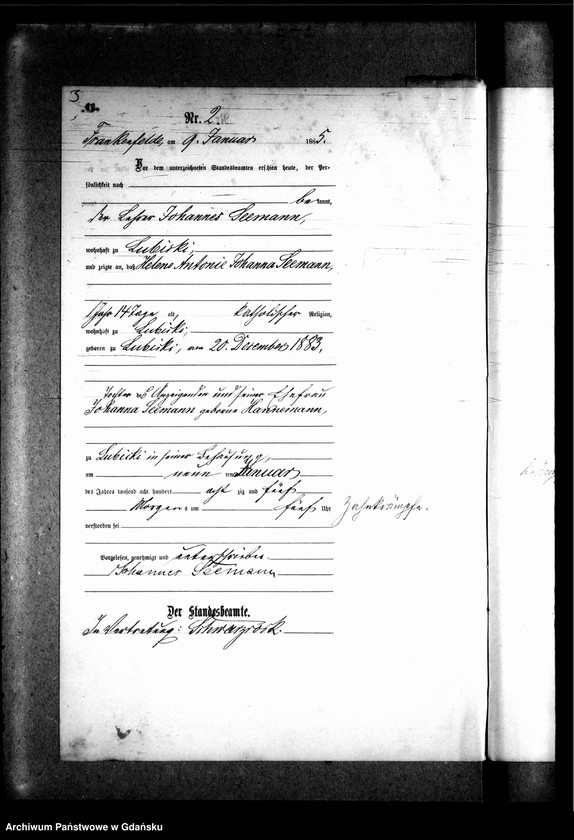 3
C.
Nr. 2.
Frankenfelde, am 9. Januar 1885.
Vor dem unterzeichneten Standesbeamten erschien heute, der Per-
sönlichkeit nach
be kannt,
der Lehrer Johannes Seemann,
wohnhaft zu Lubicki,
und zeigte an, daß Helene Antonie Johanna Seemann,
1 Jahr 14 Tage alt, katholischer Religion,
wohnhaft zu Lubicki,
geboren zu Lubicki, am 20. Dezember 1883,
Tochter des Anzeigenden und seiner Ehefrau
Johanna Seemann geborene Hannemann,
zu Lubicki in seiner Behausung,
am neun ten Januar
des Jahres tausend acht hundert acht zig und fünf
Morgens um fünf Uhr Zahnkrämpfe.
verstorben sei
Vorgelesen, genehmigt und unterschrieben
Johannes Seemann
Der Standesbeamte.
In Vertretung: Schwarzrock.
Archiwum Państwowe w Gdańsku